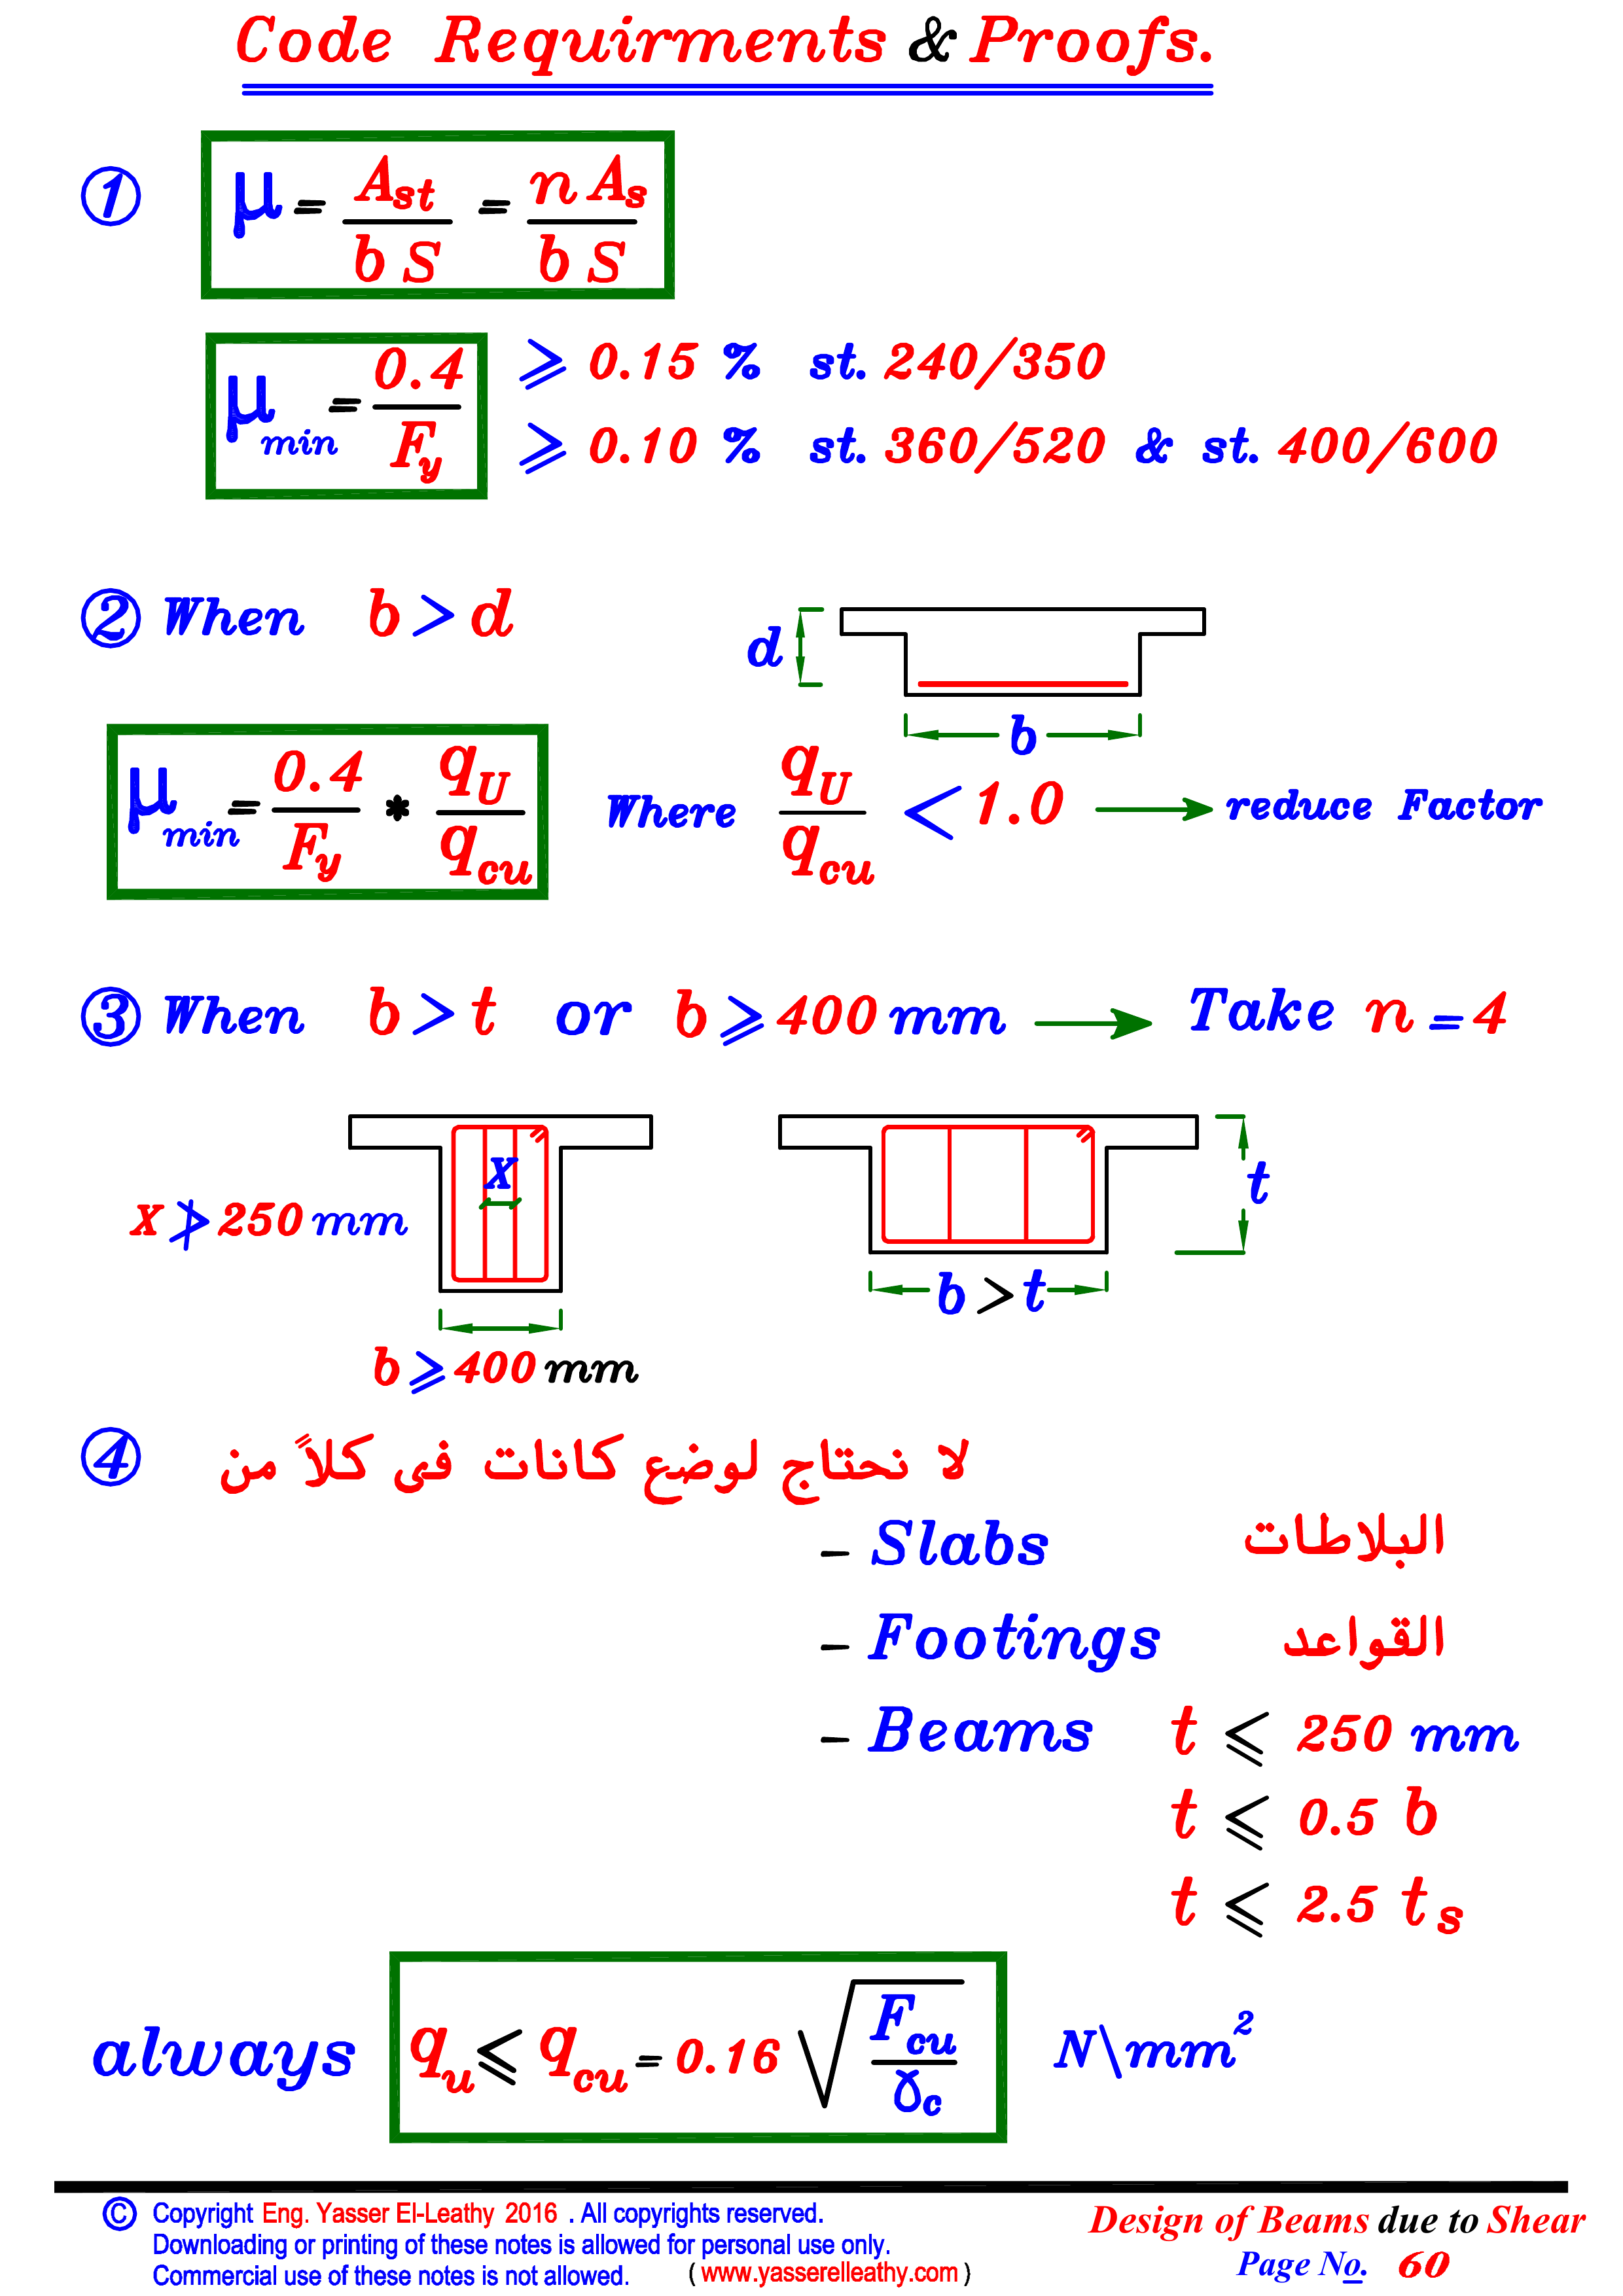 Code Requirments & Proofs.
1 μ = Ast / b S = n As / b S
μmin = 0.4 / Fy ⩾ 0.15 % st. 240/350
⩾ 0.10 % st. 360/520 & st. 400/600
2 When b > d
d
b
μmin = 0.4 / Fy * qU / qcu Where qU / qcu < 1.0 → reduce Factor
3 When b > t or b ⩾ 400 mm → Take n = 4
x
x ≯ 250 mm
t
b > t
b ⩾ 400 mm
4 لا نحتاج لوضع كانات فى كلاً من
- Slabs البلاطات
- Footings القواعد
- Beams t ⩽ 250 mm
t ⩽ 0.5 b
t ⩽ 2.5 ts
always qu ⩽ qcu = 0.16 √(Fcu / γc) N\mm²
© Copyright Eng. Yasser El-Leathy 2016 . All copyrights reserved.
Downloading or printing of these notes is allowed for personal use only.
Commercial use of these notes is not allowed. ( www.yasserelleathy.com )
Design of Beams due to Shear
Page No. 60